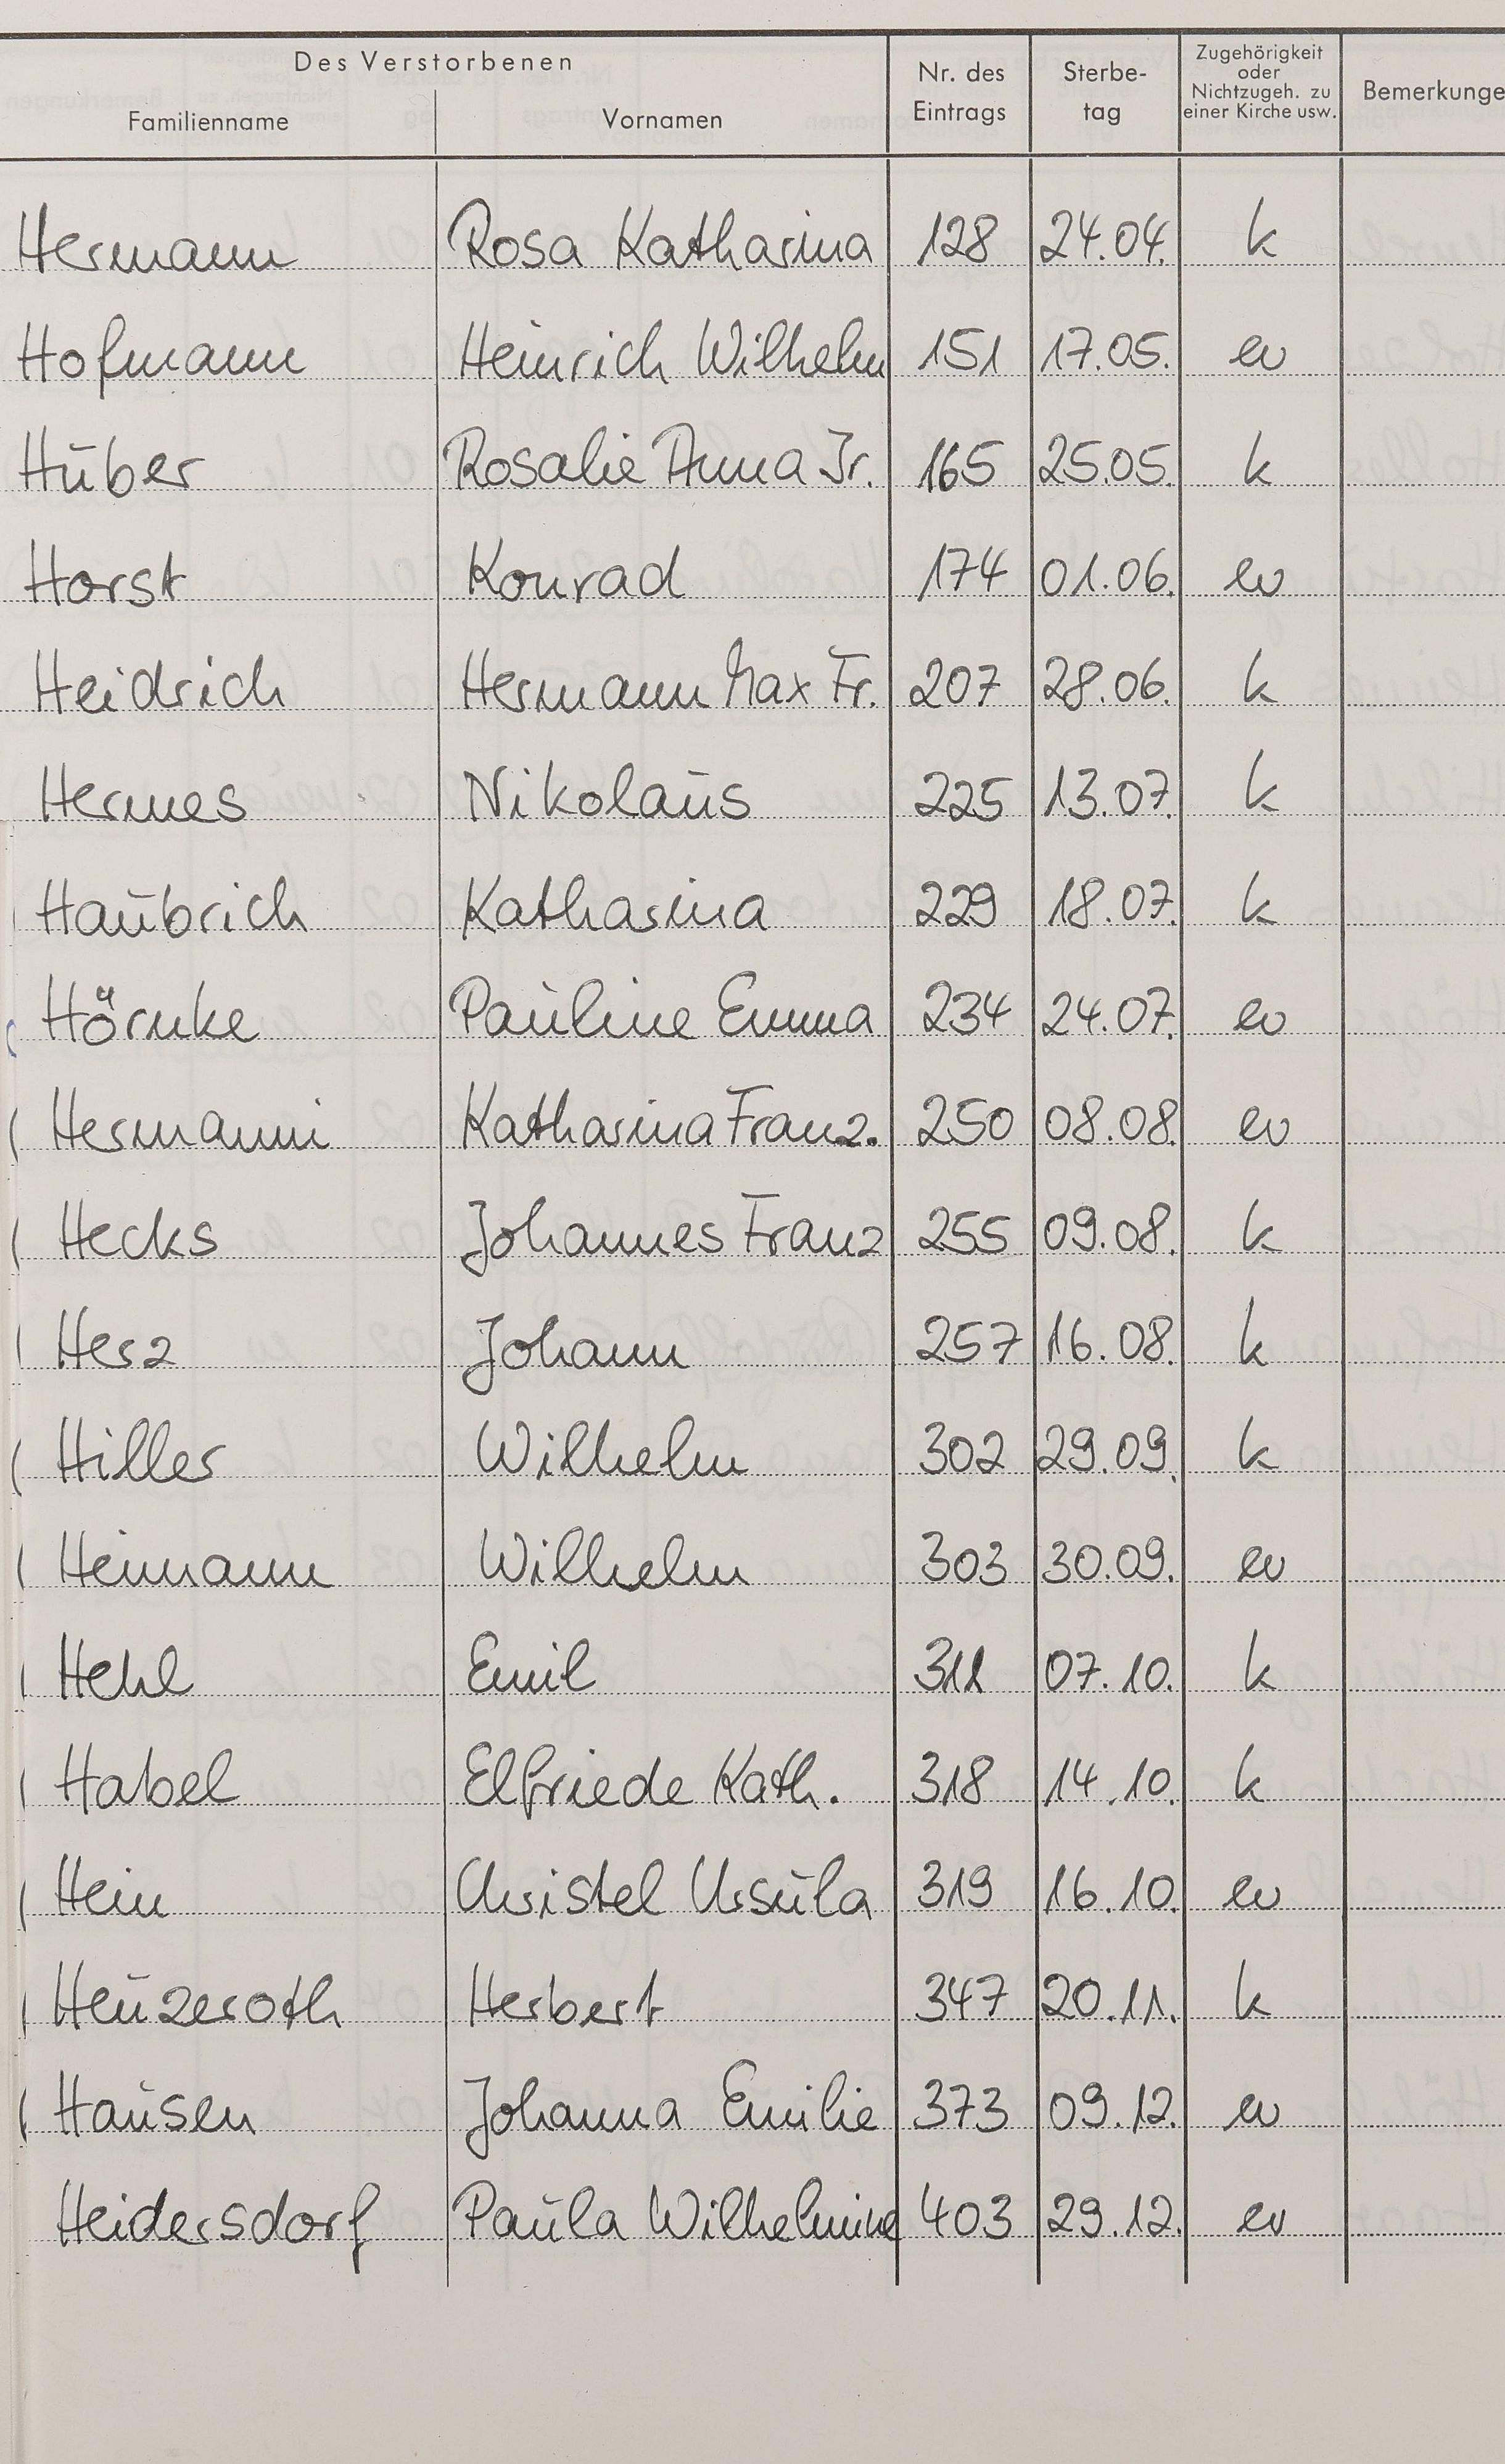 Des Verstorbenen
Familienname Vornamen Nr. des Eintrags Sterbe-tag Zugehörigkeit oder Nichtzugeh. zu einer Kirche usw. Bemerkunge
Hermann Rosa Katharina 128 24.04. k
Hofmann Heinrich Wilhelm 151 17.05. ev
Huber Rosalie Anna Ir. 165 25.05. k
Horst Konrad 174 01.06. ev
Heidrich Hermann Max Fr. 207 28.06. k
Hermes Nikolaus 225 13.07. k
Haubrich Katharina 229 18.07. k
Hörnke Pauline Emma 234 24.07. ev
Hermanni Katharina Franz. 250 08.08. ev
Hecks Johannes Franz 255 09.08. k
Herz Johann 257 16.08. k
Hiller Wilhelm 302 29.09. k
Heimann Wilhelm 303 30.09. ev
Hehl Emil 311 07.10. k
Habel Elfriede Kath. 318 14.10. k
Hein Christel Ursula 319 16.10. ev
Heuzeroth Herbert 347 20.11. k
Hausen Johanna Emilie 373 09.12. ev
Heidersdorf Paula Wilhelmine 403 29.12. ev